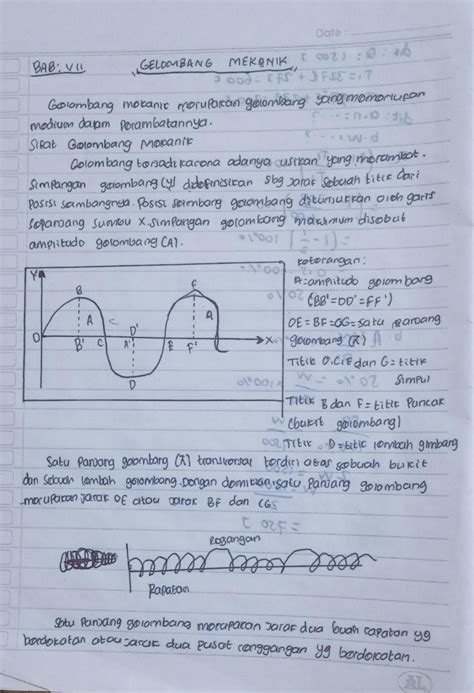 Date :
BAB: VII GELOMBANG MEKANIK
Gelombang mekanik merupakan gelombang yang memerlukan
medium dalam perambatannya.
Sifat Gelombang Mekanik
Gelombang terjadi karena adanya usikan yang merambat.
Simpangan gelombang (y) didefinisikan sbg jarak sebuah titik dari
Posisi seimbangnya. Posisi seimbang gelombang ditunjukkan oleh garis
sepanjang sumbu X. Simpangan gelombang maksimum disebut
amplitudo gelombang (A).
Keterangan:
A = amplitudo gelombang
(BB' = DD' = FF')
OE = BF = CG = satu panjang
gelombang (λ)
Titik O.C.E dan G = titik
Simpul
Titik B dan F = titik Puncak
(bukit gelombang)
Titik D = titik lembah glmbang
Y
B
F
A
C
D'
A
O
B'
C
A'
E
F'
X
D
Satu Panjang gelombang (λ) transversal terdiri atas sebuah bukit
dan sebuah lembah gelombang. Dengan demikian, satu Panjang gelombang
merupakan jarak OE atau jarak BF dan CG
Regangan
Rapatan
Satu panjang gelombang merupakan jarak dua buah rapatan yg
berdekatan atau jarak dua pusat renggangan yg berdekatan.